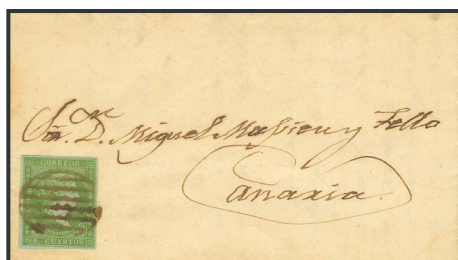 Sr. D. Miguel Massieu y Tello
Canaria.
CORREOS
CUARTOS